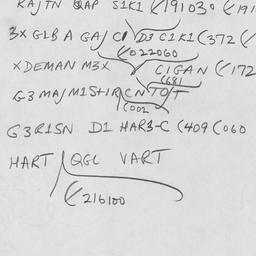 KAJTN QAP S1K1 (/191030 (/191
3X GLB A GAJ C D3 C1K1 (372 (/
(/022060
XDEMAN M3X C1GAN (/172
(681
G3 MAJ M1STHR CNTO/T
(002
G3R1SN D1 HAR3-C (409 (060
HART QGC VART
(/216100